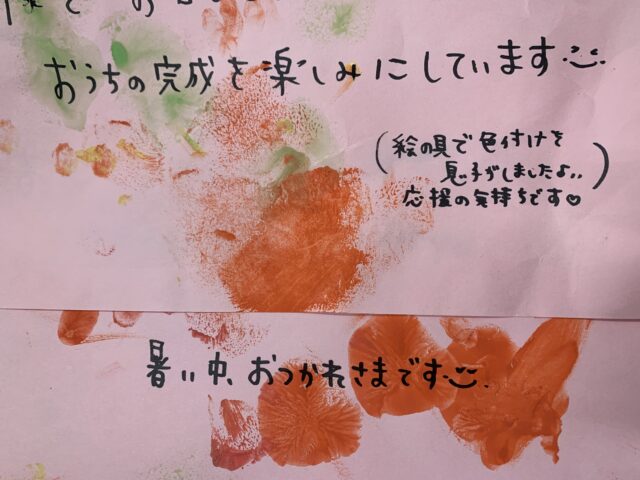 おうちの完成を楽しみにしています
(絵の具で色付けを
息子がしましたよ..
応援の気持ちです♡)
暑い中、おつかれさまです